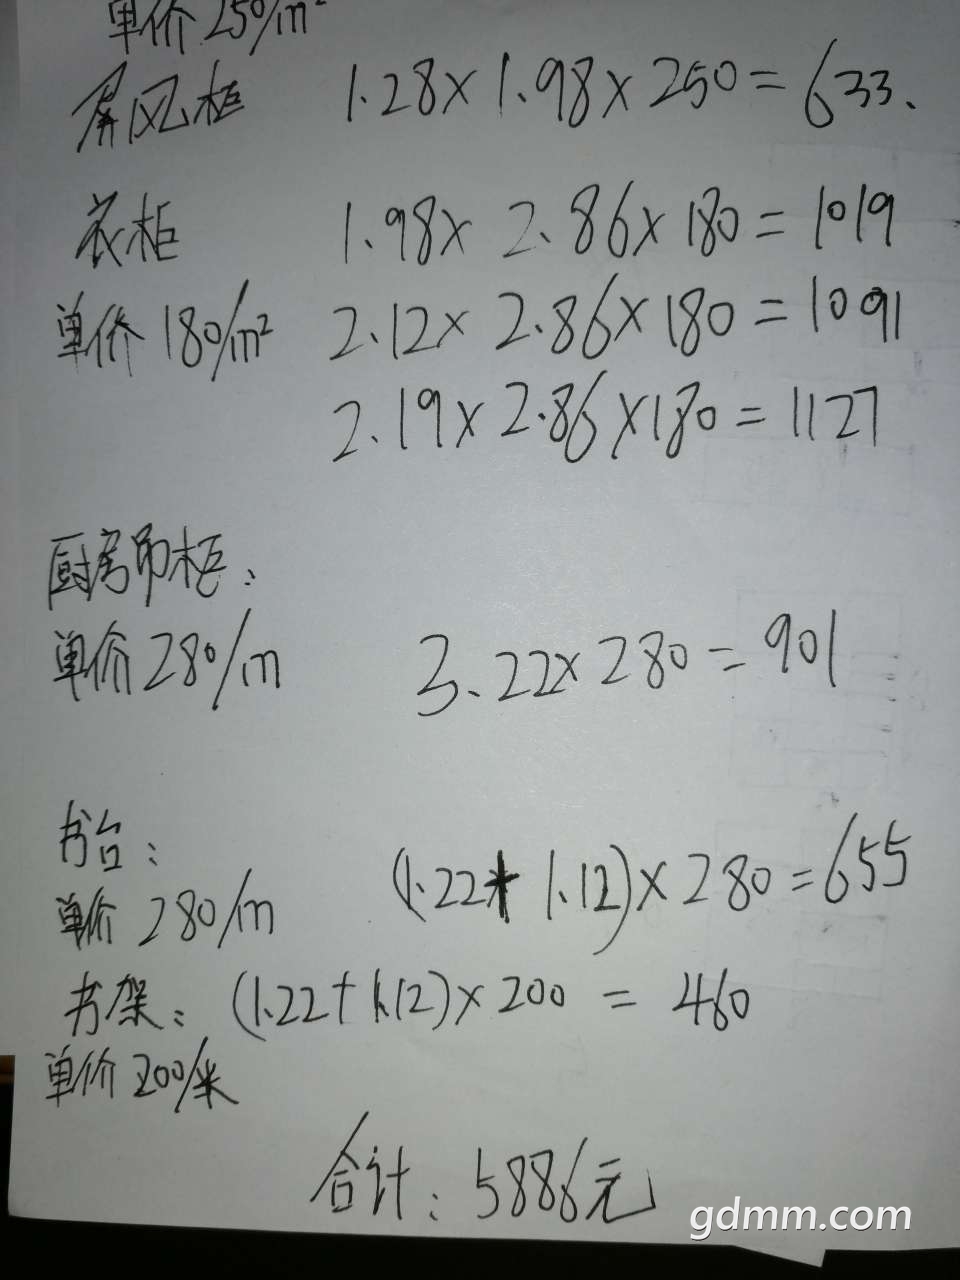 单价 250/m²
屏风柜 1.28×1.98×250=633.
衣柜 1.98×2.86×180=1019
单价180/m² 2.12×2.86×180=1091
2.19×2.86×180=1127
厨房吊柜:
单价280/m 3.22×280=901
书台:
单价280/m (1.22+1.12)×280=655
书架: (1.22+1.12)×200=460
单价200/米
合计: 5886元
gdmm.com